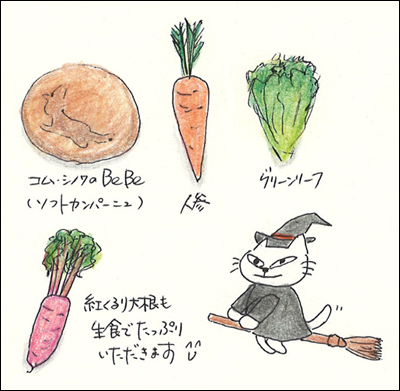 コム・シノワのBeBe
(ソフトカンパーニュ)
人参
グリーンリーフ
紅くるり大根も
生食でたっぷり
いただきます